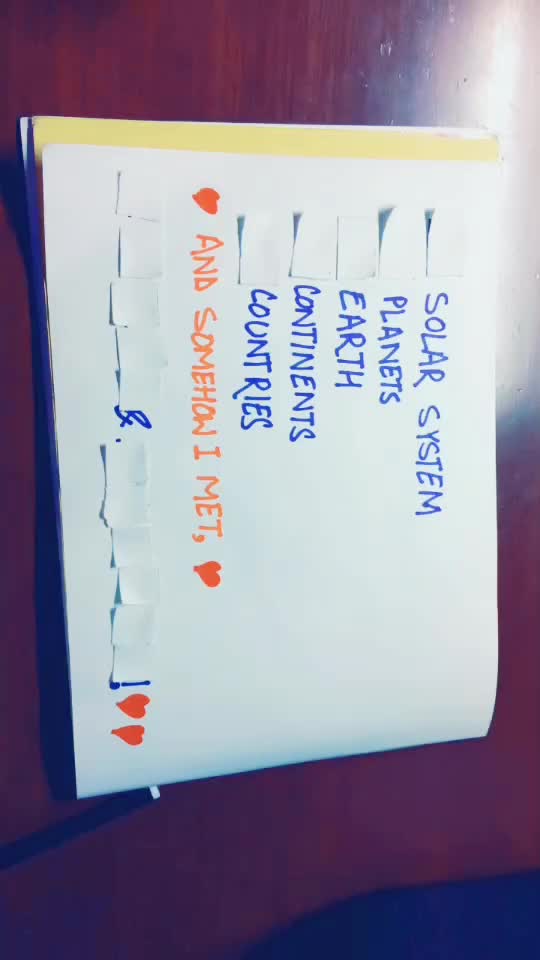 SOLAR SYSTEM
PLANETS
EARTH
CONTINENTS
COUNTRIES
AND SOMEHOW I MET,
& !